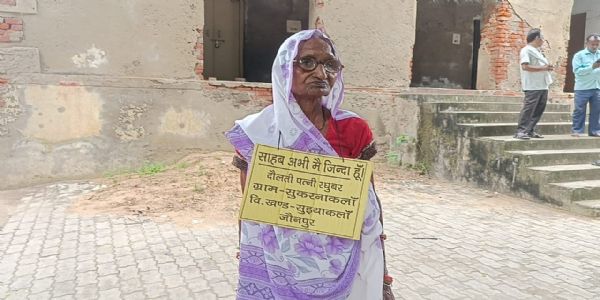 साहब अभी मै जिन्दा हूँ।
दौलती पत्नी रघुबर
ग्राम-सुकरनाकलॉ
वि.खण्ड-सुइथाकलॉ
जौनपुर